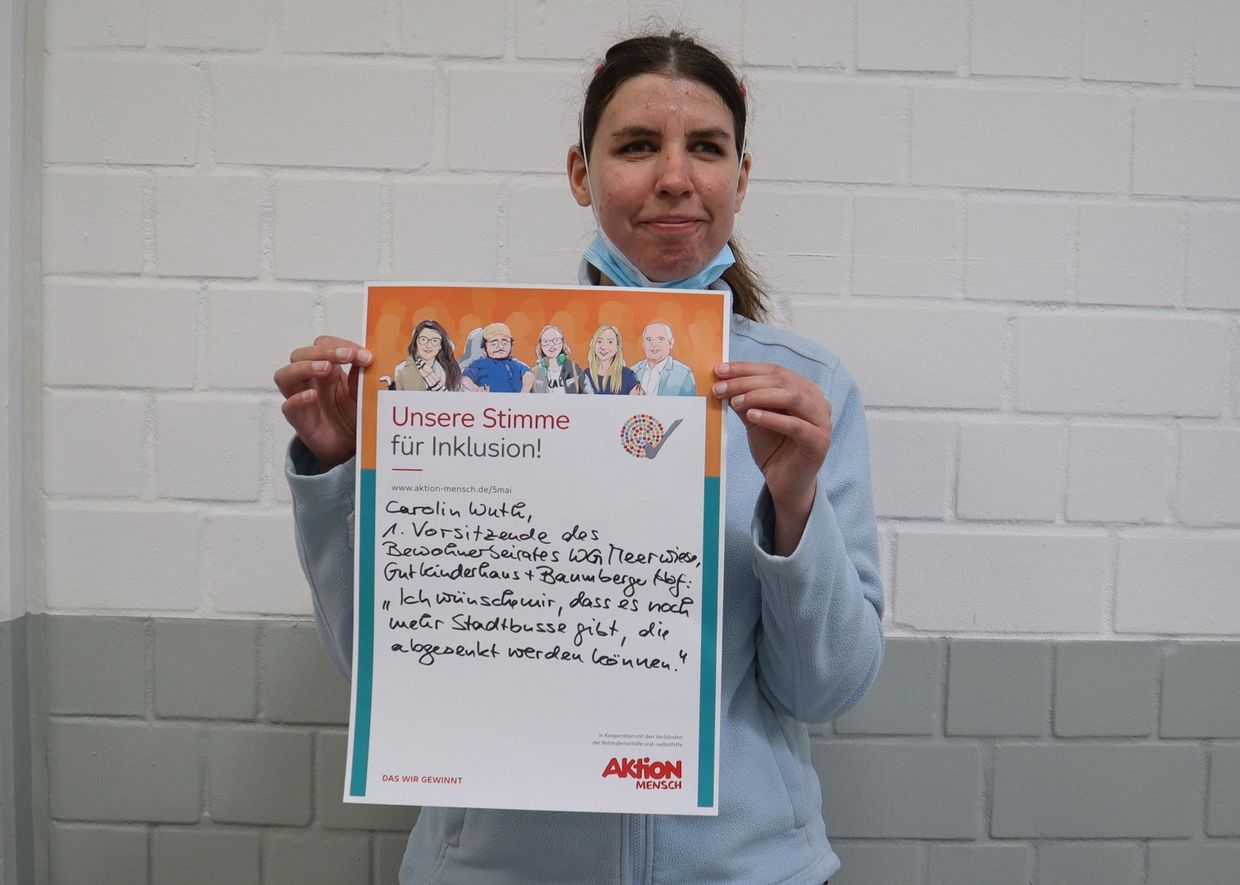 Unsere Stimme
für Inklusion!
www.aktion-mensch.de/5mai
Carolin Wuth,
1. Vorsitzende des
Bewohnerbeirates WG Meerwiese,
Gut Kinderhaus + Baumberger Hof:
„Ich wünsche mir, dass es noch
mehr Stadtbusse gibt, die
abgesenkt werden können."
In Kooperation mit den Verbänden
der Behindertenhilfe und -selbsthilfe
DAS WIR GEWINNT
AKTION
MENSCH